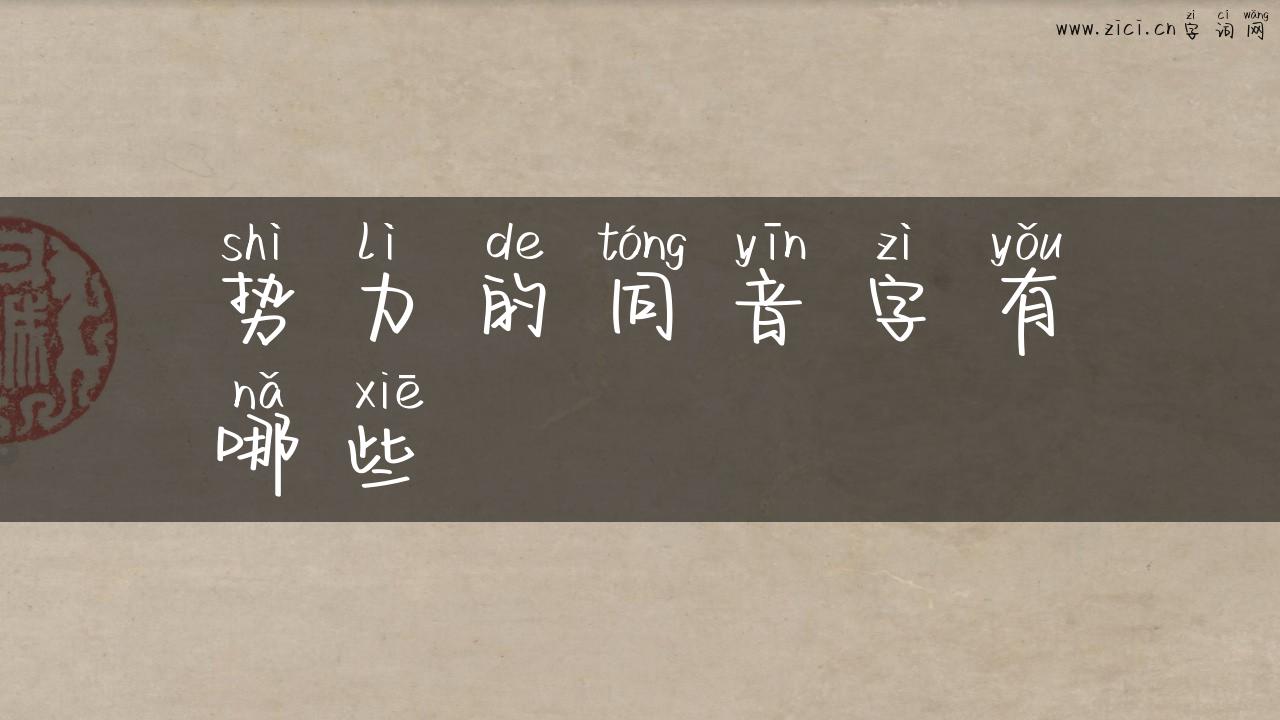 zì cí wǎng
www.zici.cn 字词网
shì lì de tóng yīn zì yǒu
势力的同音字有
nǎ xiē
哪些